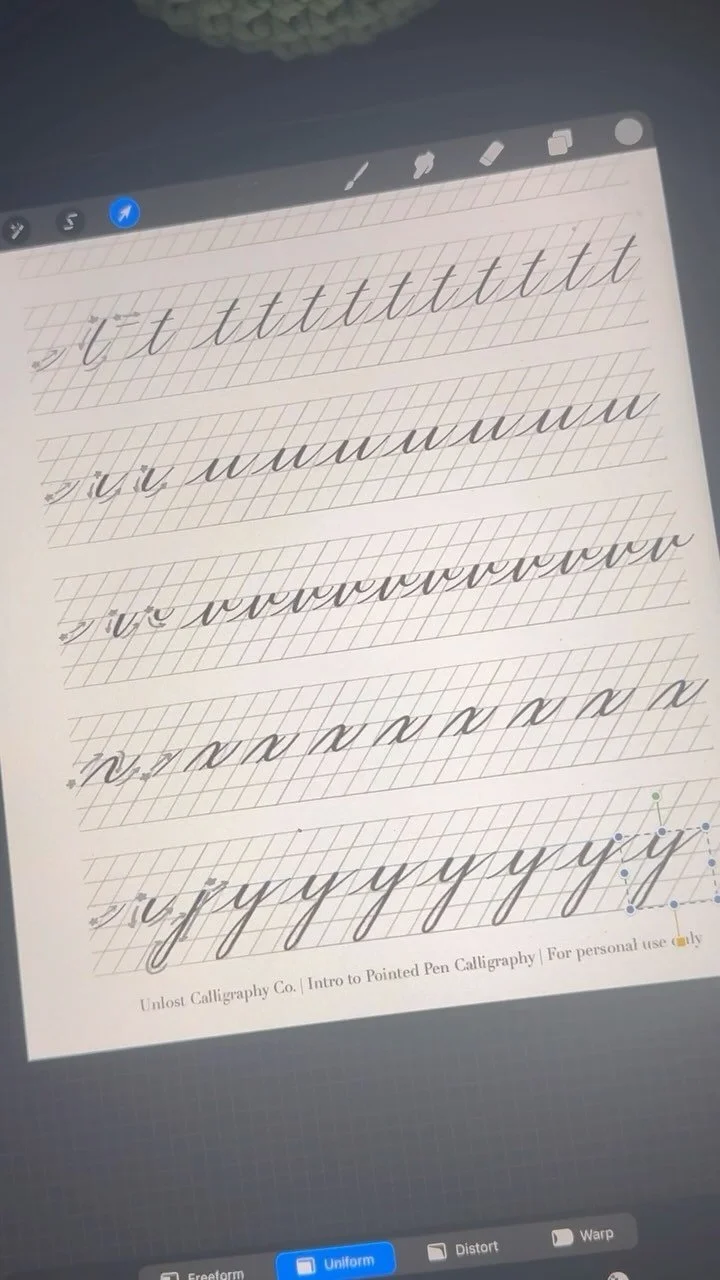 t t t t t t t t t t t t
u u u u u u u u u
v v v v v v v v v v v v v
x x x x x x x x x
y y y y y y y y y
Unlost Calligraphy Co. | Intro to Pointed Pen Calligraphy | For personal use only
Freeform Uniform Distort Warp